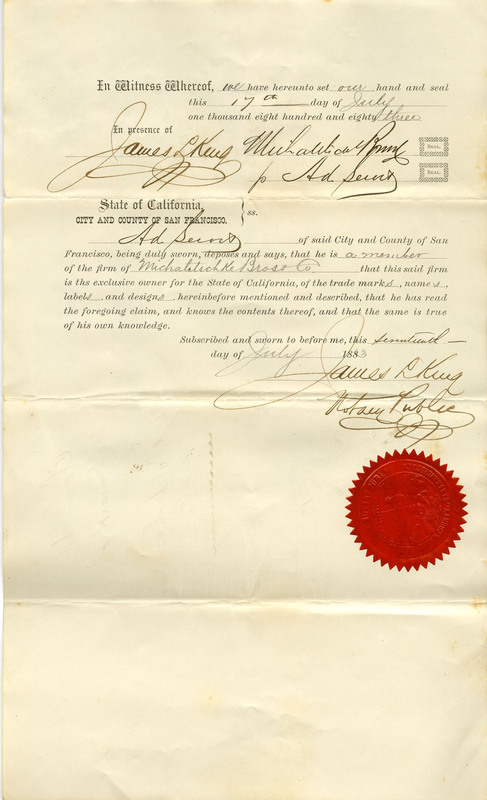 In Witness Whereof, we have hereunto set our hand and seal
this 17th day of July
one thousand eight hundred and eighty three
In presence of
James L King
Seal.
p Ad
Seal.
State of California,
CITY AND COUNTY OF SAN FRANCISCO.
ss.
Ad of said City and County of San
Francisco, being duly sworn, deposes and says, that he is a member
of the firm of Michalitschke Bros & Co that this said firm
is the exclusive owner for the State of California, of the trade marks, names,
labels and designs hereinbefore mentioned and described, that he has read
the foregoing claim, and knows the contents thereof, and that the same is true
of his own knowledge.
Subscribed and sworn to before me, this seventeenth
day of July 1883
James L King
Notary Public